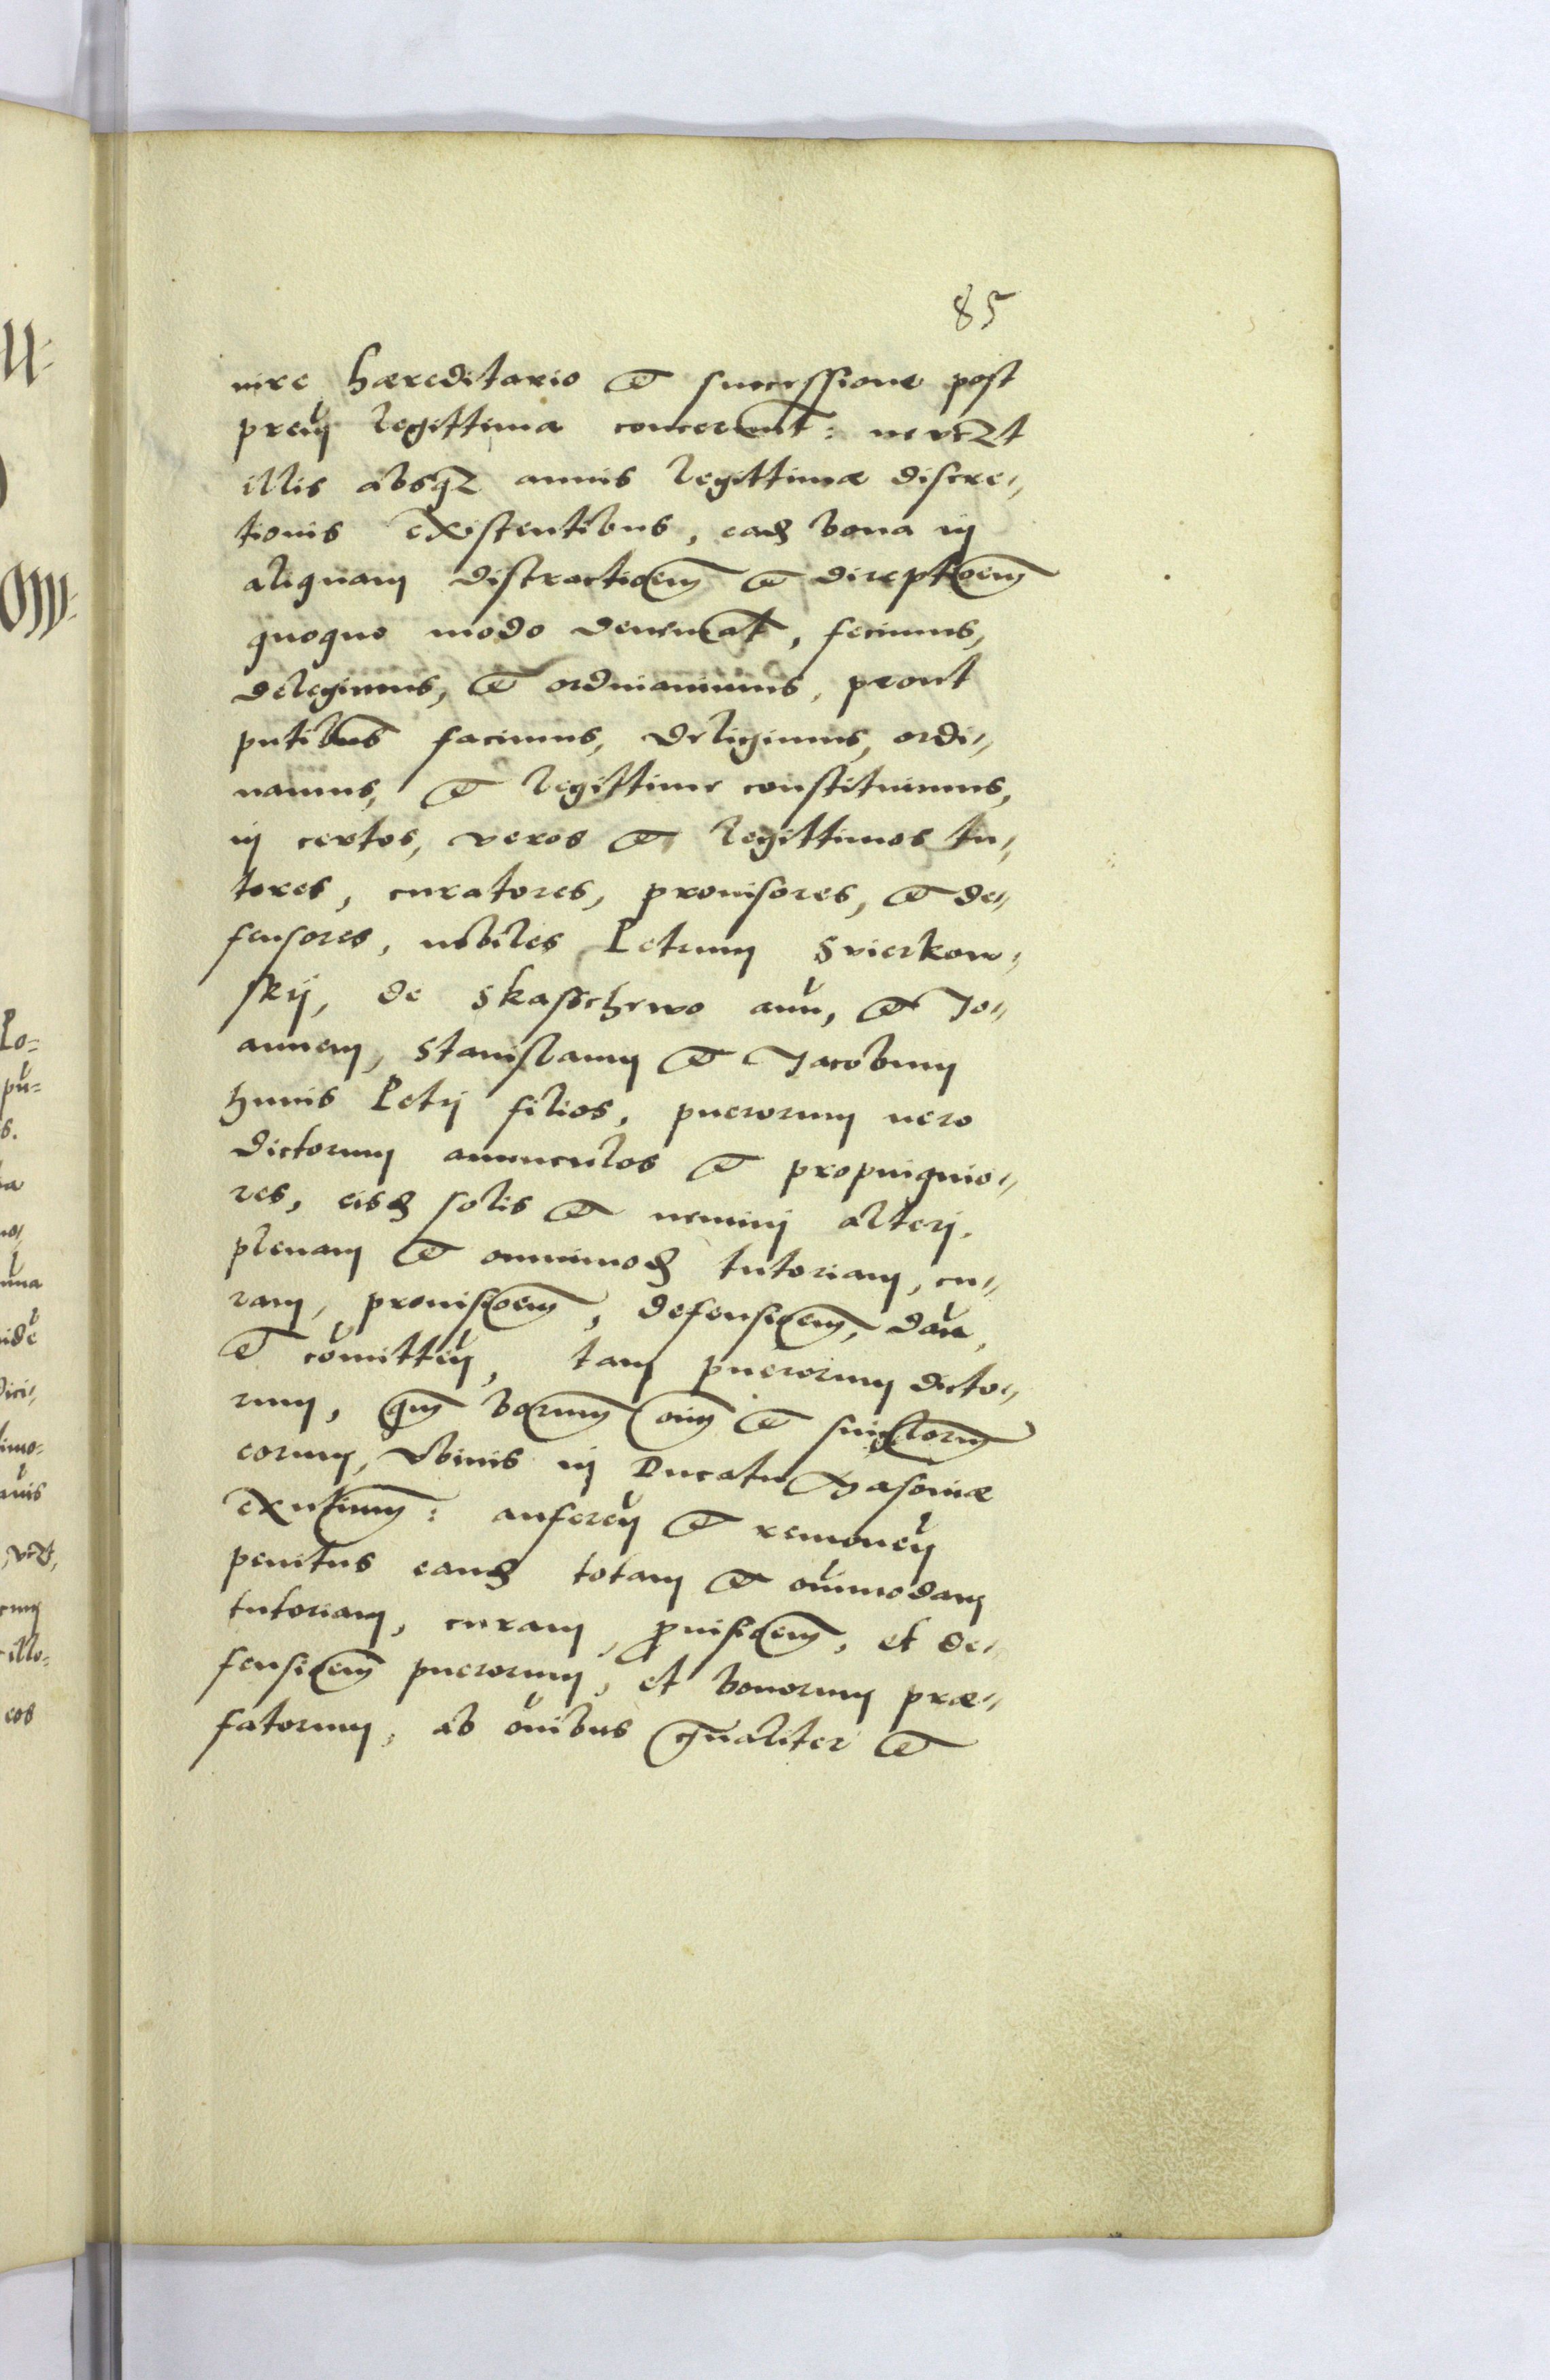 85
iure hæreditario et successione post
prem̄ legittima concernunt: ne videlt
illis absq₃ annis legittimæ discre„
tionis existentibus, ead bona in
aliquam distractioem et direptioem
quoquo modo deueniat, fecimus,
delegimus, et ordinauimus, prout
pntibus facimus, deligimus, ordi„
namus, et legittime constituimus,
in certos, veros et legittimos tu„
tores, curatores, prouisores, et de„
fensores, nobiles Petrum Svierkow„
skij, de Skaschewo auū, et Jo„
annem, Stanislaum et Jacobum
huius Petri filios, puerorum uero
dictorum auunculos et propinquio„
res, eisd solis et nemini alteri.
plenam et omnimod tutoriam, cu„
ram, prouisioem, defensioem, dan̄,
et com̄itten̄, tam puerorum dicto„
rum, qm̄ borum oīm et singlorum
eorum, vbiuis in Ducatu Masouiæ
exn̄tium: auferen̄ et remouen̄
penitus eand totam et oīmmodam
tutoriam, curam, prouisioem, et de„
fensioem puerorum, et bonorum præ„
fatorum, ab oībus gnaliter et